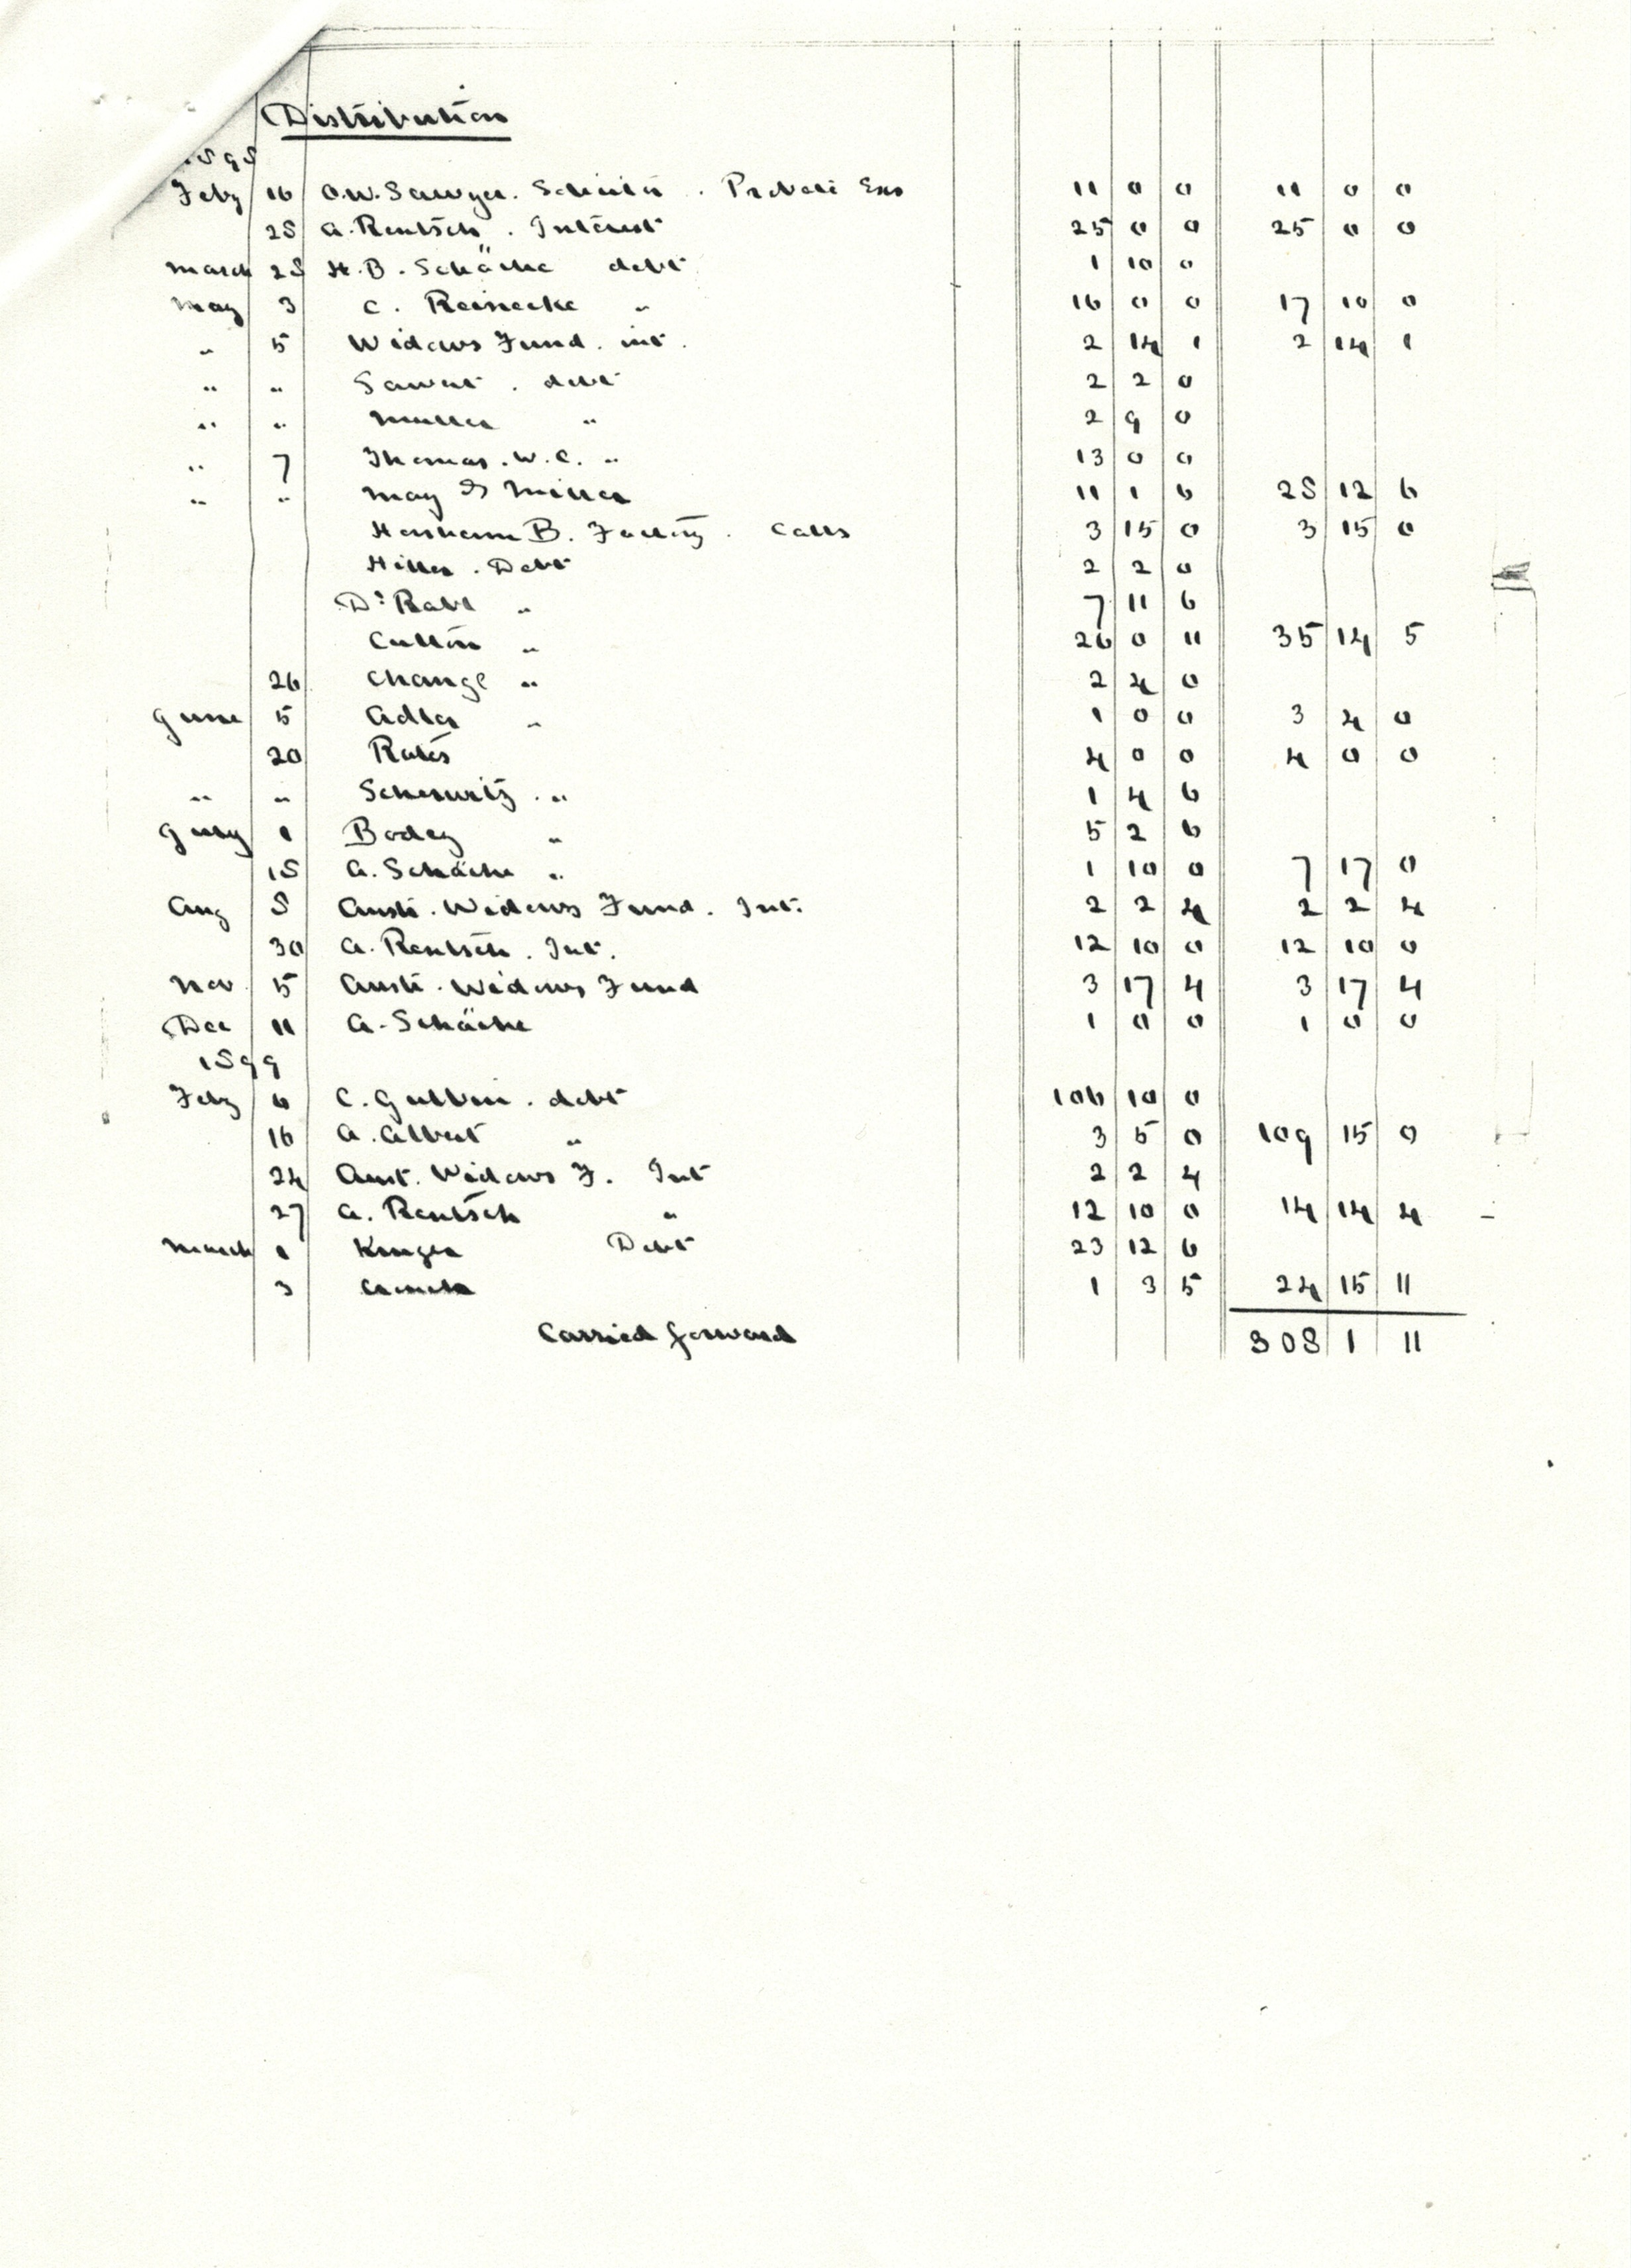 Distribution
1898
Feby 16 O.W. Sawyer. Solicitor. Probate Exs 11 0 0 11 0 0
28 A. Rentsch. Interest 25 0 0 25 0 0
March 28 H.B. Schäche debt 1 10 0
May 3 C. Reinecke " 16 0 0 17 10 0
" 5 Widows Fund. int. 2 14 1 2 14 1
" " debt 2 2 0
" " Muller " 2 9 0
" 7 Thomas. W.C. " 13 0 0
" " May & Miller 11 1 6 28 12 6
Horsham B. Factory. Calls 3 15 0 3 15 0
Hiller. Debt 2 2 0
Dr Rabl " 7 11 6
" 26 0 11 35 14 5
26 Change " 2 4 0
June 5 Adler " 1 0 0 3 4 0
20 Rates 4 0 0 4 0 0
" " Scherwitz. " 1 4 6
July 1 Bodey " 5 2 6
18 A. Schäche " 1 10 0 7 17 0
Aug 8 Aust. Widows Fund. Int. 2 2 4 2 2 4
30 A. Rentsch. Int. 12 10 0 12 10 0
Nov 5 Aust. Widows Fund 3 17 4 3 17 4
Dec 11 A. Schäche 1 0 0 1 0 0
1899
Feby 6 C. debt 106 10 0
16 A. Albert " 3 5 0 109 15 0
24 Aust. Widows F. Int 2 2 4
27 A. Rentsch " 12 10 0 14 14 4 -
March 1 Kruger Debt 23 12 6
3 1 3 5 24 15 11
Carried forward 308 1 11